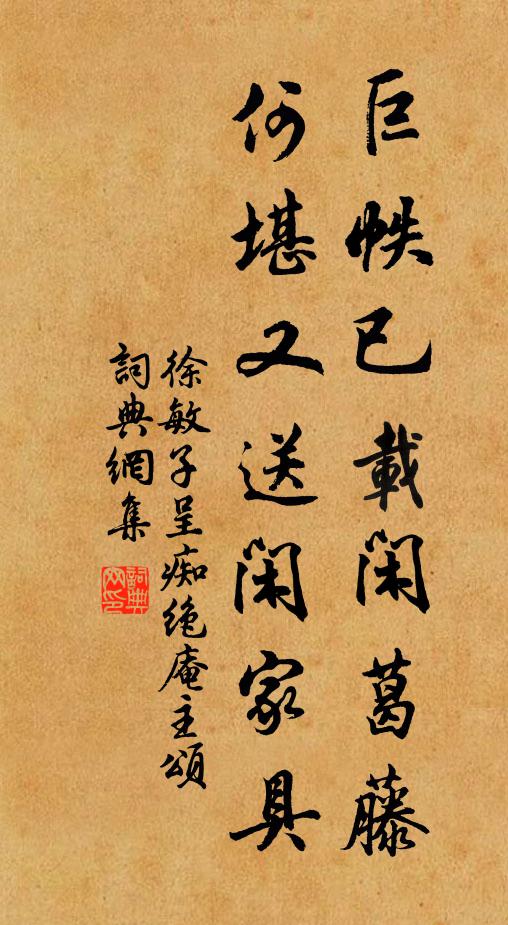 巨帙已載閑葛藤
何堪又送閑家具
徐敏子呈痴绝庵主頌
詞典網集
詞典網印